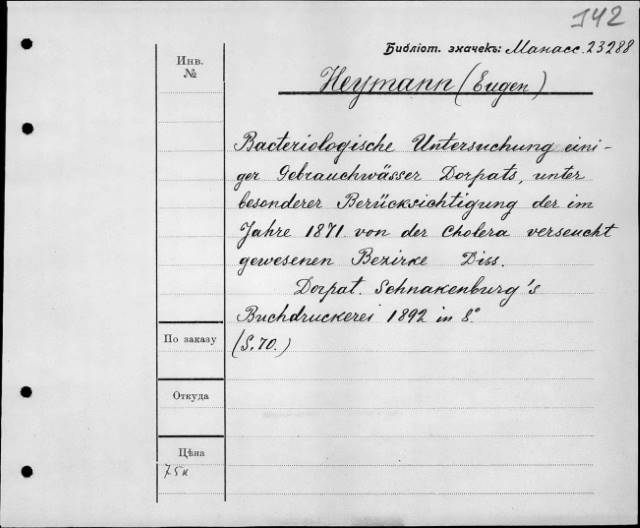 142
Библіот. значекъ: Манасс. 23288
Инв.
№
Heymann (Eugen)
Bacteriologische Untersuchung eini-
ger Gebrauchwässer Dorpats, unter
besonderer Berücksichtigung der im
Jahre 1871 von der Cholera verseucht
gewesenen Bezirke Diss.
Dorpat. Schnakenburg's
Buchdruckerei 1892 in 8°
(S. 70.)
По заказу
Откуда
Цѣна
75к